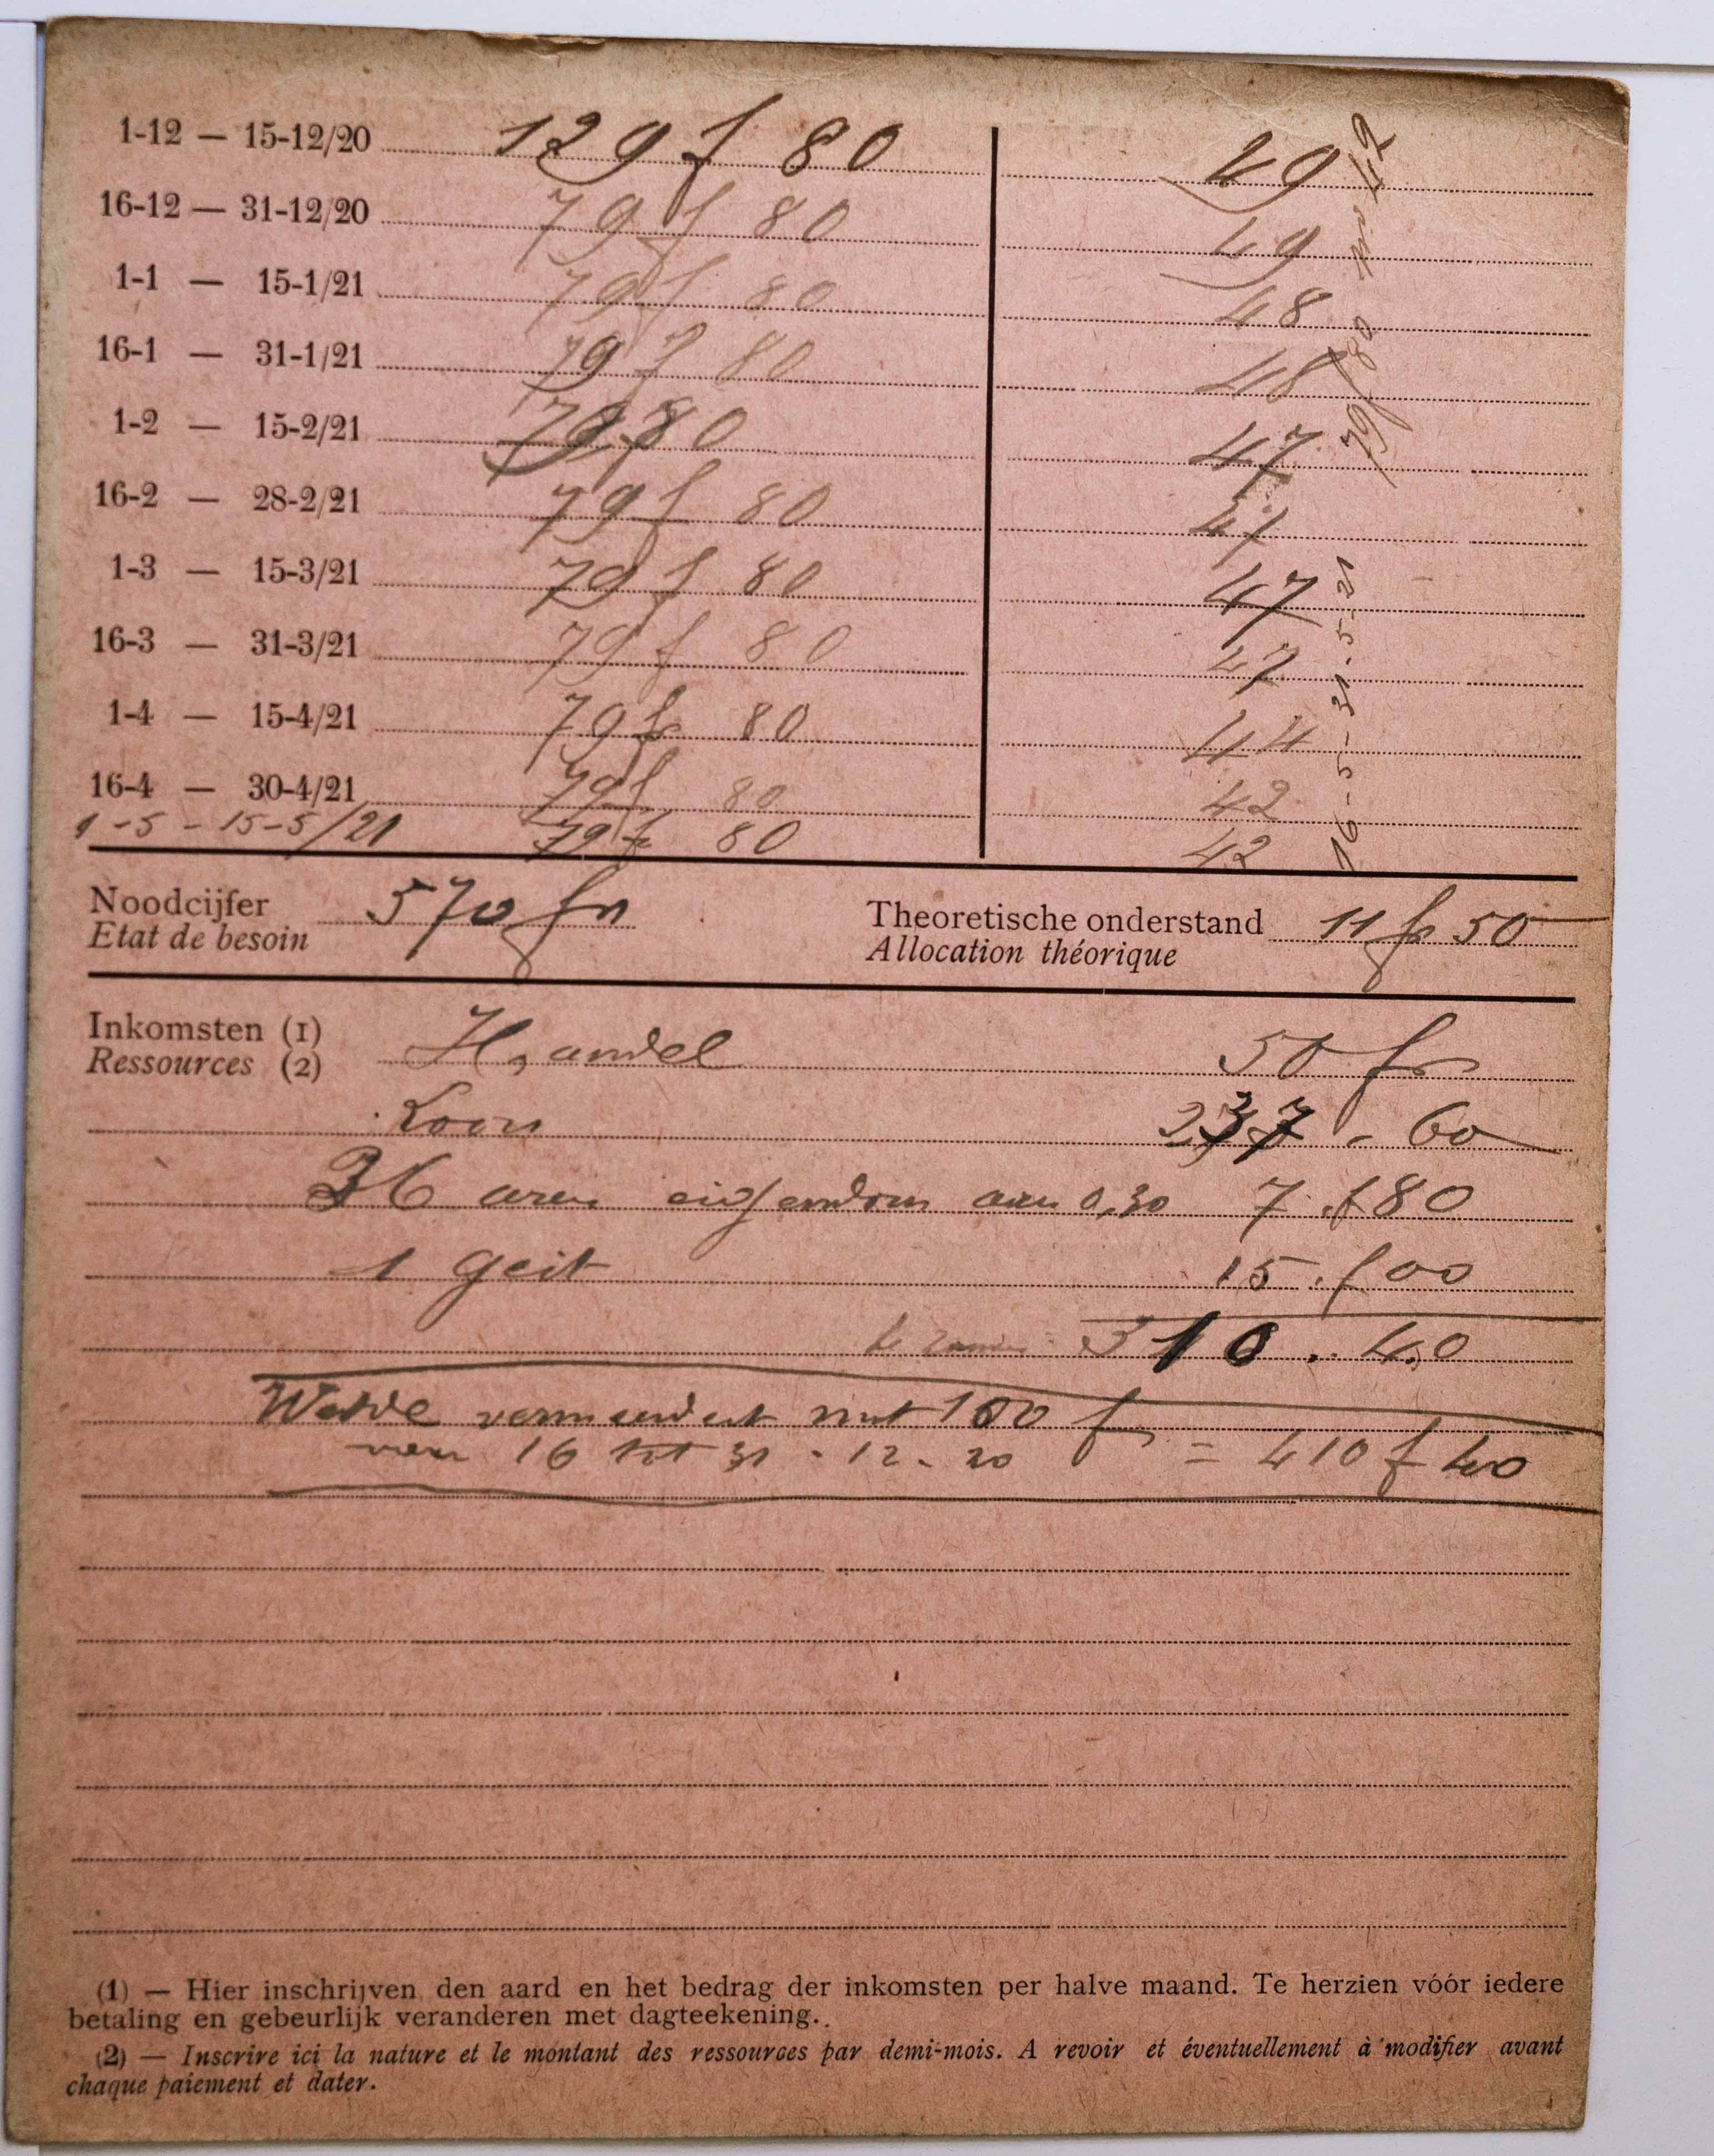 1-12 — 15-12/20 129 f 80 49
16-12 — 31-12/20 79 f 80 49
1-1 — 15-1/21 79 f 80 48
16-1 — 31-1/21 79 f 80 48
1-2 — 15-2/21 79 80 47
16-2 — 28-2/21 79 f 80 47
1-3 — 15-3/21 79 f 80 47
16-3 — 31-3/21 79 f 80 47
1-4 — 15-4/21 79 fr 80 44
16-4 — 30-4/21 79 f 80 42
1-5 - 15-5/21 79 f 80 42
16-5-31-5-21 79 f 80 42
Noodcijfer 570 fr Theoretische onderstand 11 fr 50
Etat de besoin Allocation théorique
Inkomsten (1) Handel 50 fr
Ressources (2)
Loon 237 - 60
26 aren eigendom aan 0,30 7 f 80
1 Geit 15 f 00
te zamen 310 .. 40
Wedde vermeerdert met 100 f
van 16 tot 31 - 12 - 20 = 410 f 40
(1) — Hier inschrijven den aard en het bedrag der inkomsten per halve maand. Te herzien vóór iedere
betaling en gebeurlijk veranderen met dagteekening.
(2) — Inscrire ici la nature et le montant des ressources par demi-mois. A revoir et éventuellement à modifier avant
chaque paiement et dater.